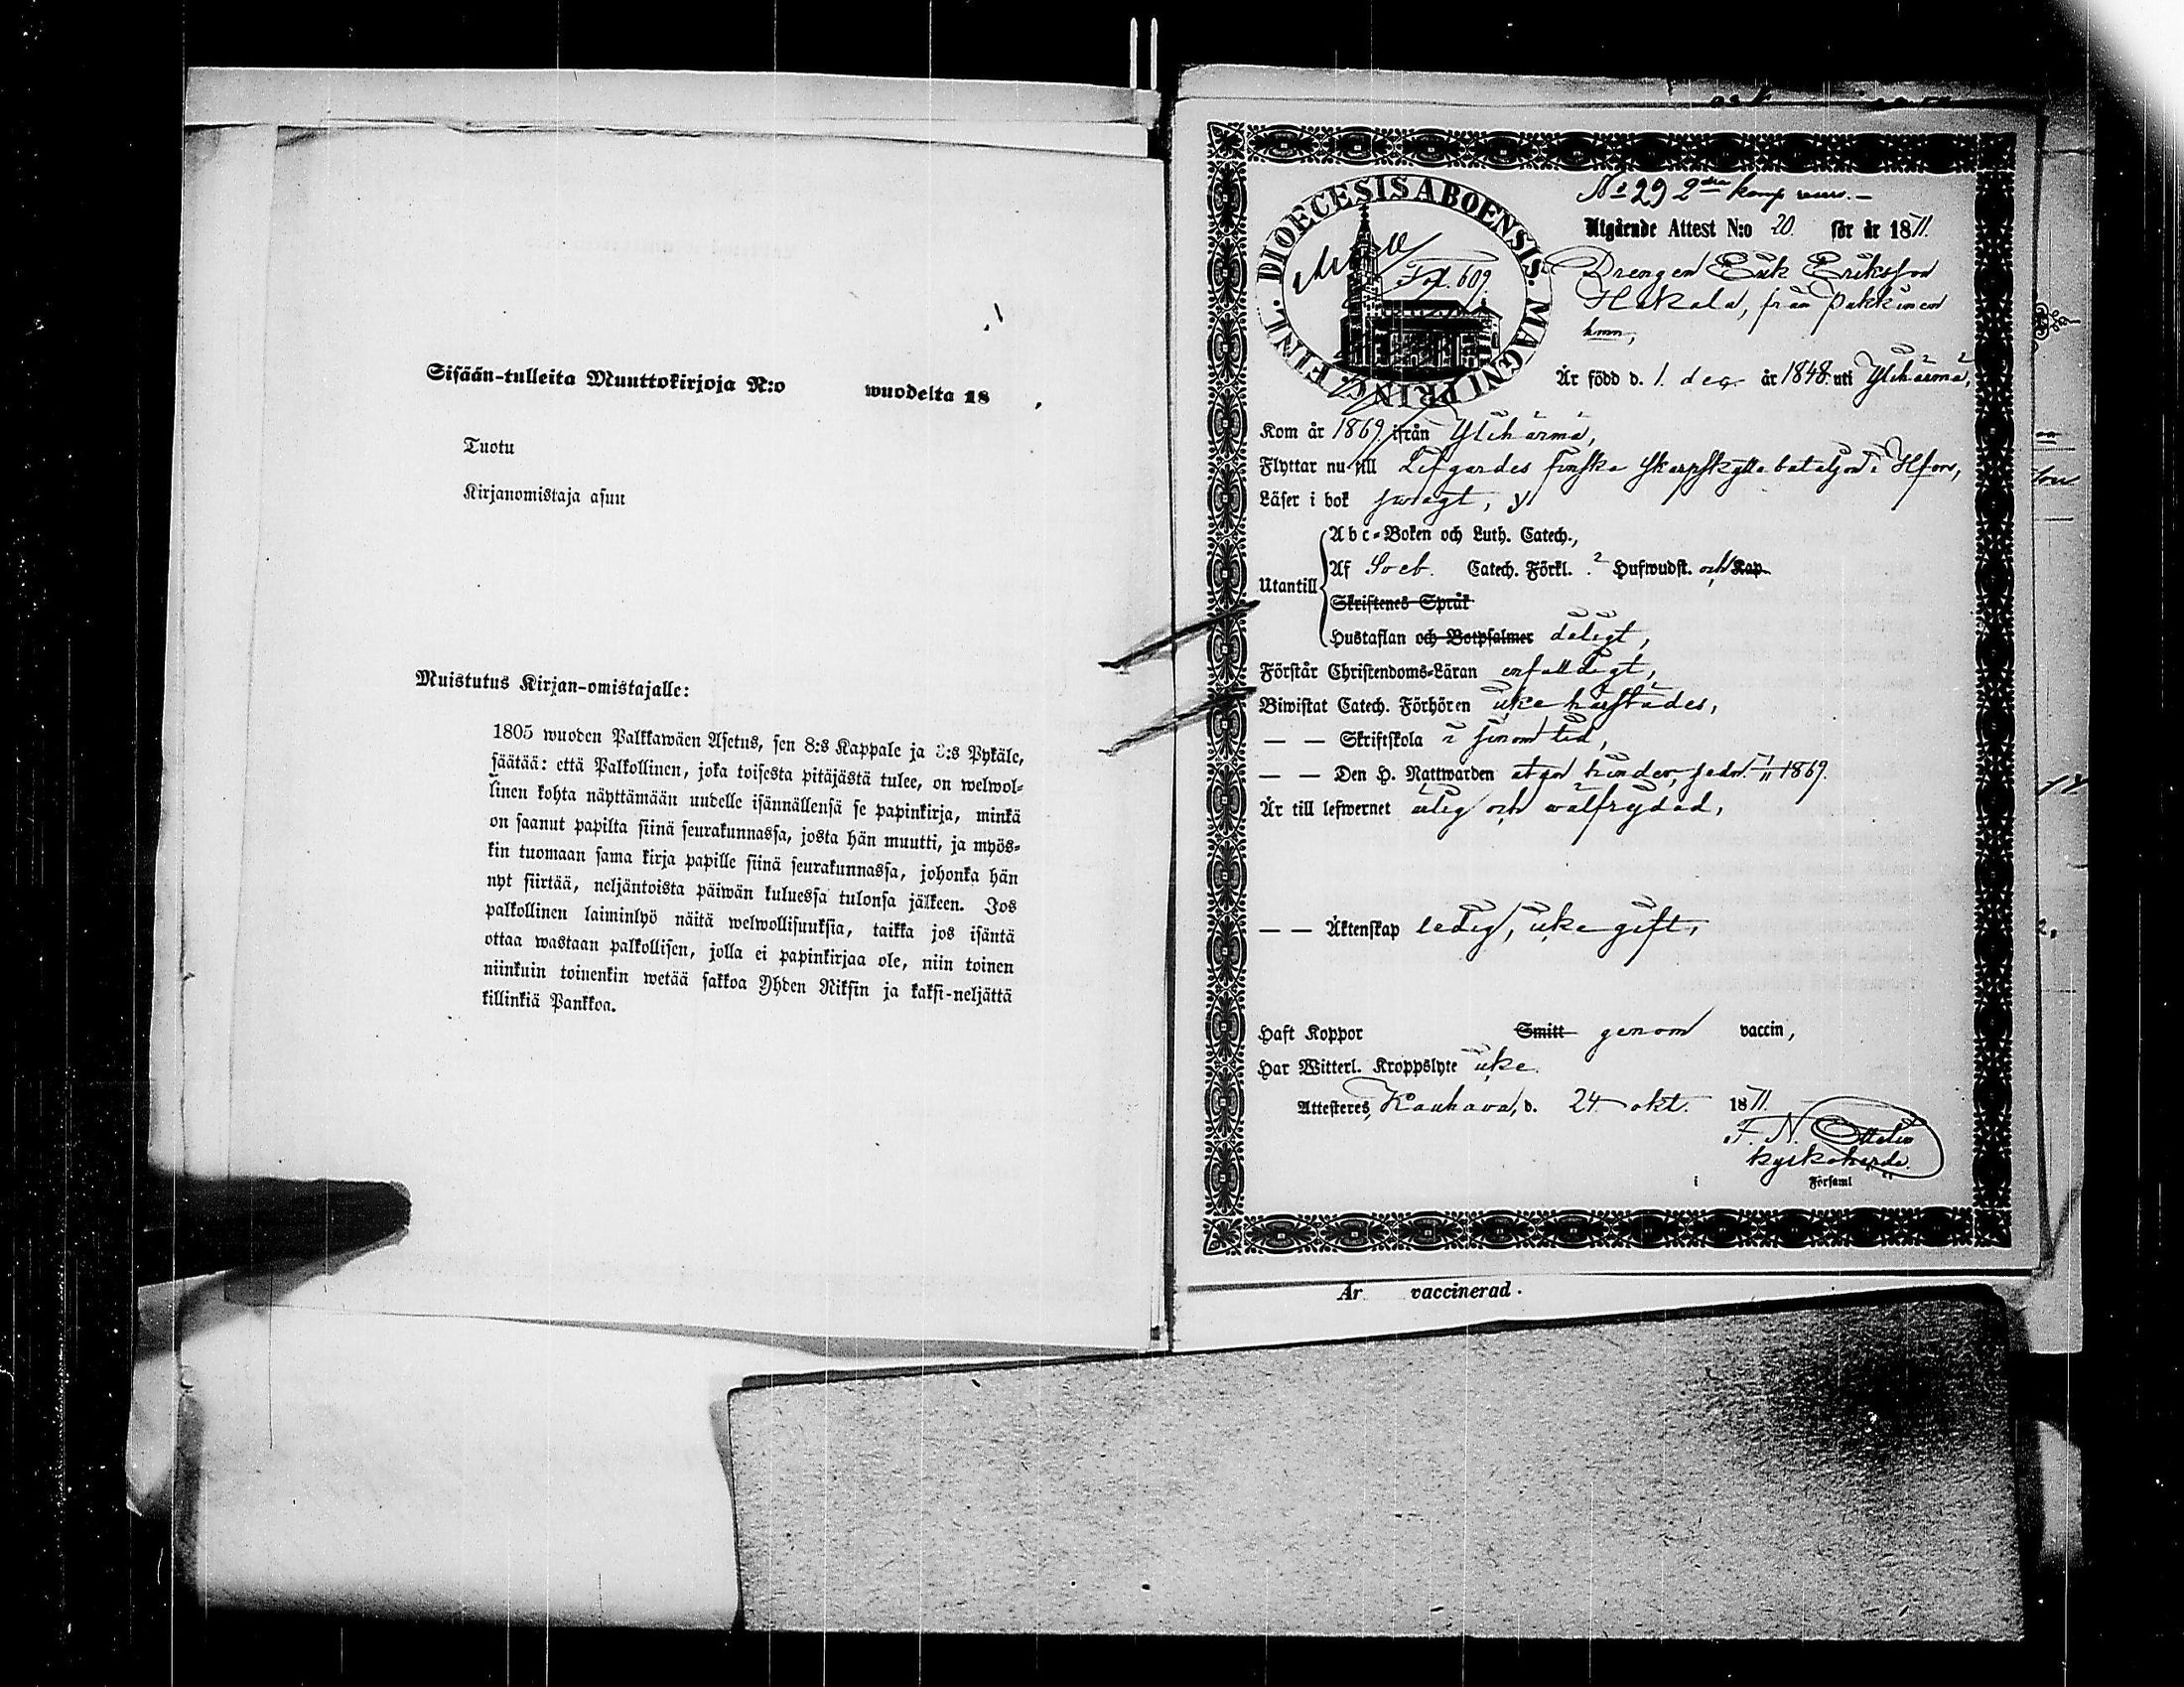 Sisään-tulleita Muuttokirjoja N:o wuodelta 18
Tuotu
Kirjanomistaja asuu
Muistutus Kirjan-omistajalle:
1805 wuoden Palkkawäen Asetus, sen 8:s Kappale ja 3:s Pykäle,
säätää: että Palkollinen, joka toisesta pitäjästä tulee, on welwol-
linen kohta näyttämään uudelle isännällensä se papinkirja, minkä
on saanut papilta siinä seurakunnassa, josta hän muutti, ja myös-
kin tuomaan sama kirja papille siinä seurakunnassa, johonka hän
nyt siirtää, neljäntoista päiwän kuluessa tulonsa jälkeen. Jos
palkollinen laiminlyö näitä welwollisuuksia, taikka jos isäntä
ottaa wastaan palkollisen, jolla ei papinkirjaa ole, niin toinen
niinkuin toinenkin wetää sakkoa Yhden Riksin ja kaksi-neljättä
killinkiä Pankkoa.
DIOECESIS ABOENSIS. MAGNI PRINC. FINL.
Fol. 609.
No 29 2dra komp
Utgående Attest N:o 20. för år 1871.
Drengen Erik Eriksson
Hakala, från Pakkinen
hmn,
Är född d. 1. dec. år 1848. uti Ylihärmä,
Kom år 1869 ifrån Ylihärmä,
Flyttar nu till Lifgardes finska skarpskytte bataljon i Hfors,
Läser i bok swagt,
Utantill
Abc-Boken och Luth. Catech.,
Af Soeb. Catech. Förkl. 2 Hufwudst. och Kap.
Skriftenes Språk
Hustaflan och Botpsalmer dåligt,
Förstår Christendoms-Läran enfaldigt,
Biwistat Catech. Förhören icke härstädes,
— — Skriftskola i sinom tid,
— — Den H. Nattwarden utan hinder, sedn. 1869.
Är till lefwernet ärlig och wälfrejdad,
— — Äktenskap ledig, icke gift,
Haft Koppor Smitt genom vaccin,
Har Witterl. Kroppslyte icke.
Attesteres, Kauhava, d. 24 okt. 1871.
F. N. Ottelin
kyrkoherde.
i Församl
Är vaccinerad.